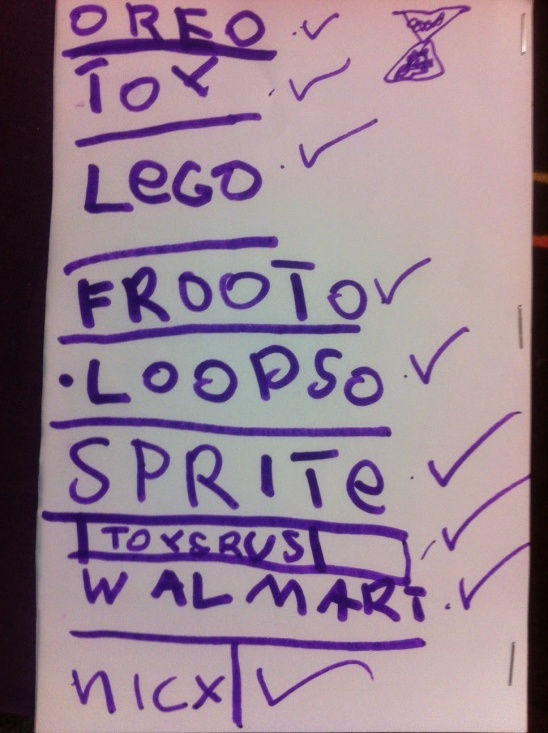 OREO
TOY
LEGO
FROOTO
LOOPSO
SPRITe
TOYSRUS
WALMART
NICX